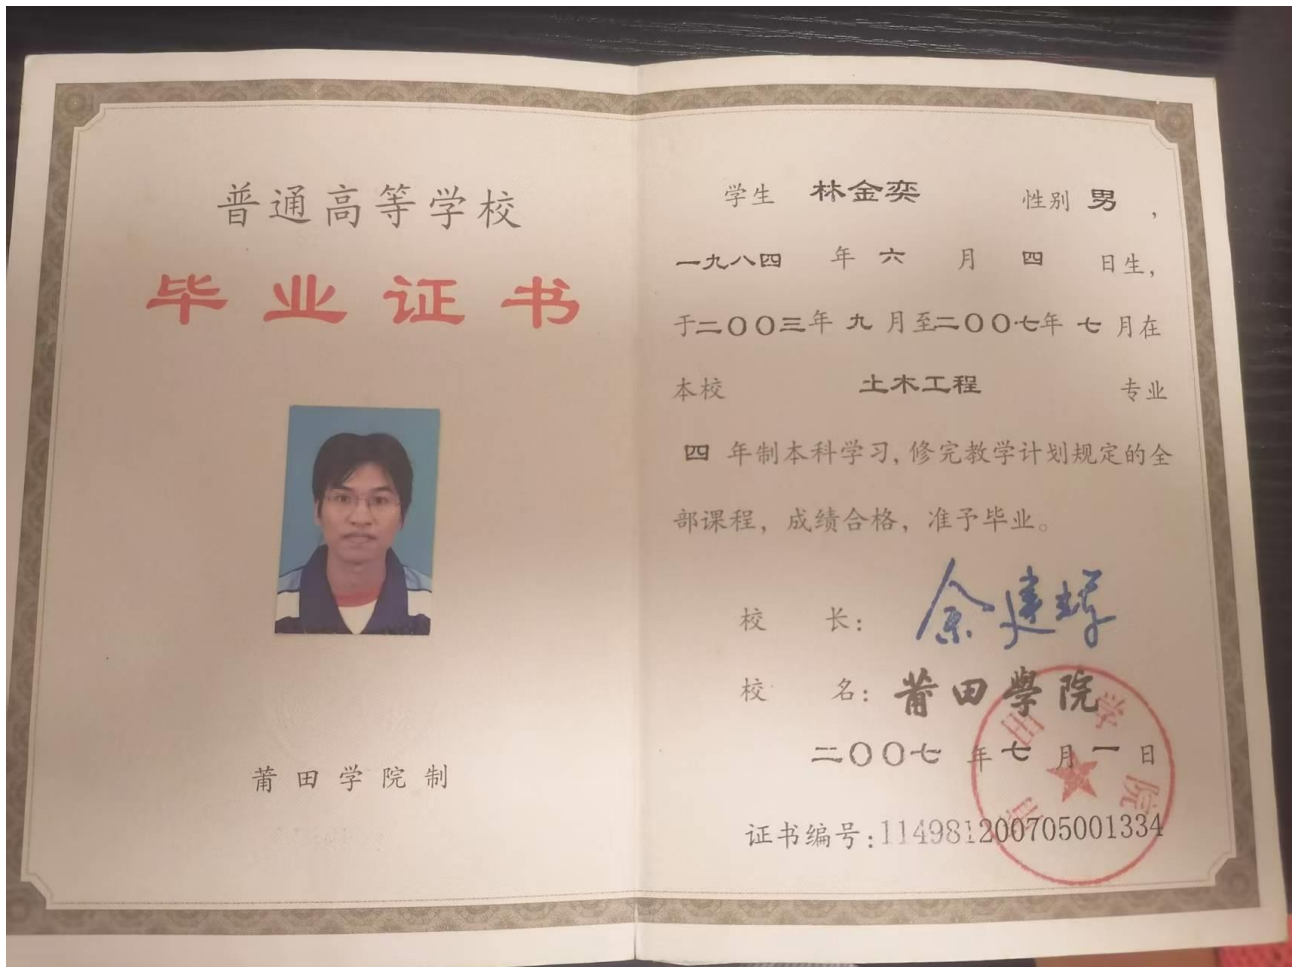 普通高等学校
毕业证书
莆田学院制
学生 林金奕 性别 男，
一九八四 年 六 月 四 日生，
于二〇〇三年 九 月至二〇〇七年 七 月在
本校 土木工程 专业
四 年制本科学习，修完教学计划规定的全
部课程，成绩合格，准予毕业。
校 长： 余建辉
校 名：莆田學院
二〇〇七 年 七 月 一 日
证书编号：114981200705001334
莆田学院